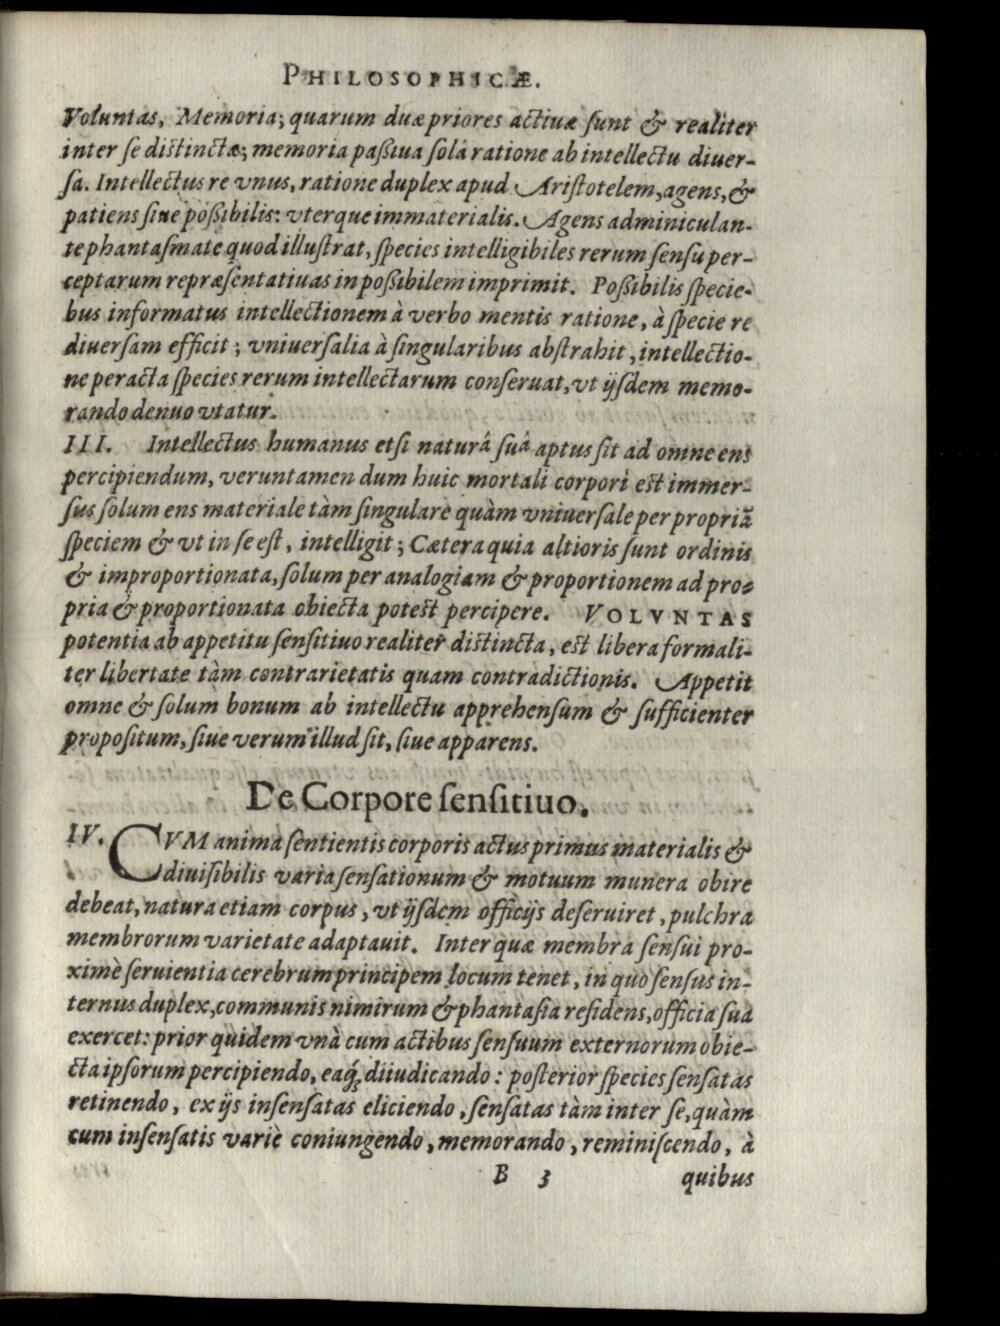 PHILOSOPHICÆ.
Voluntas, Memoria; quarum duæ priores actiuæ sunt & realiter
inter se distinctæ; memoria paßiua solâ ratione ab intellectu diuer-
sa. Intellectus re vnus, ratione duplex apud Aristotelem, agens, &
patiens siue poßibilis: vterque immaterialis. Agens adminiculan-
te phantasmate quod illustrat, species intelligibiles rerum sensu per-
ceptarum repræsentatiuas in poßibilem imprimit. Poßibilis specie-
bus informatus intellectionem à verbo mentis ratione, à specie re
diuersam efficit; vniuersalia à singularibus abstrahit, intellectio-
ne peracta species rerum intellectarum conseruat, vt ijsdem memo-
rando denuo vtatur.
III. Intellectus humanus etsi naturâ suâ aptus sit ad omne ens
percipiendum, veruntamen dum huic mortali corpori est immer-
sus solum ens materiale tàm singulare quàm vniuersale per propriã
speciem & vt in se est, intelligit; Cætera quia altioris sunt ordinis
& improportionata, solum per analogiam & proportionem ad pro-
pria & proportionata obiecta potest percipere. VOLVNTAS
potentia ab appetitu sensitiuo realiter distincta, est libera formali-
ter libertate tàm contrarietatis quam contradictionis. Appetit
omne & solum bonum ab intellectu apprehensum & sufficienter
propositum, siue verum illud sit, siue apparens.
De Corpore sensitiuo.
IV. CVM anima sentientis corporis actus primus materialis &
diuisibilis varia sensationum & motuum munera obire
debeat, natura etiam corpus, vt ijsdem officijs deseruiret, pulchra
membrorum varietate adaptauit. Inter quæ membra sensui pro-
ximè seruientia cerebrum principem locum tenet, in quo sensus in-
ternus duplex, communis nimirum & phantasia residens, officia sua
exercet: prior quidem vnà cum actibus sensuum externorum obie-
cta ipsorum percipiendo, eaq́; diiudicando: posterior species sensatas
retinendo, ex ijs insensatas eliciendo, sensatas tàm inter se, quàm
cum insensatis variè coniungendo, memorando, reminiscendo, à
B 3 quibus